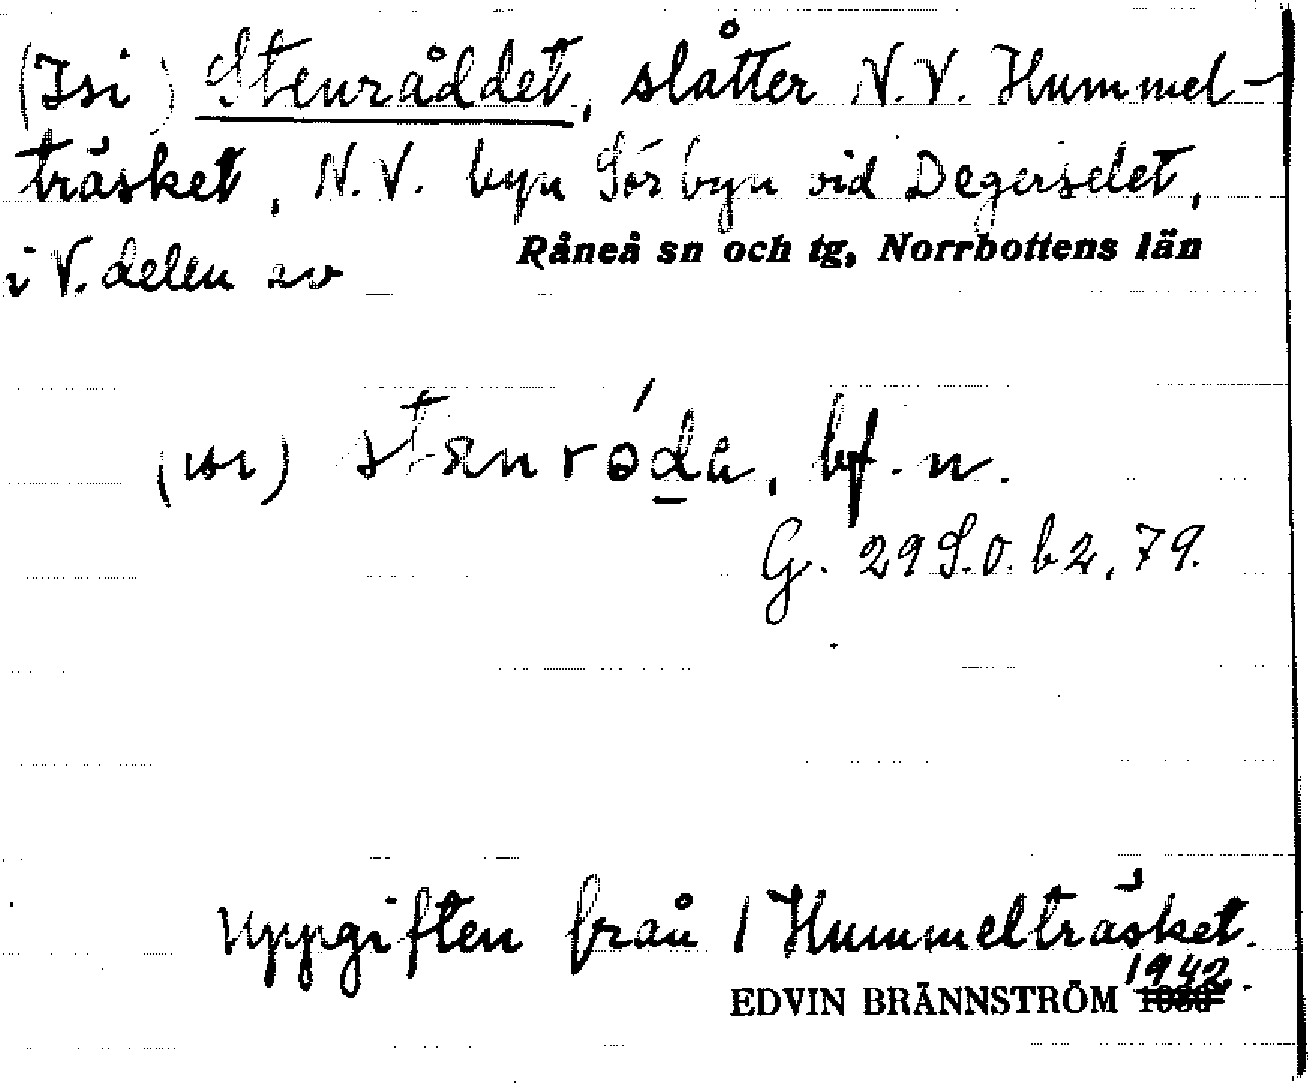 (Isi) Stenråddet, slåtter N.V. Hummel-
träsket, N.V. byn Sörbyn vid Degerselet,
i V. delen av Råneå sn och tg, Norrbottens län
(ısı) stænróda, bf. n.
G. 29 S.O. b2, 79.
Uppgiften från 1 Hummelträsket.
EDVIN BRÄNNSTRÖM 1942.